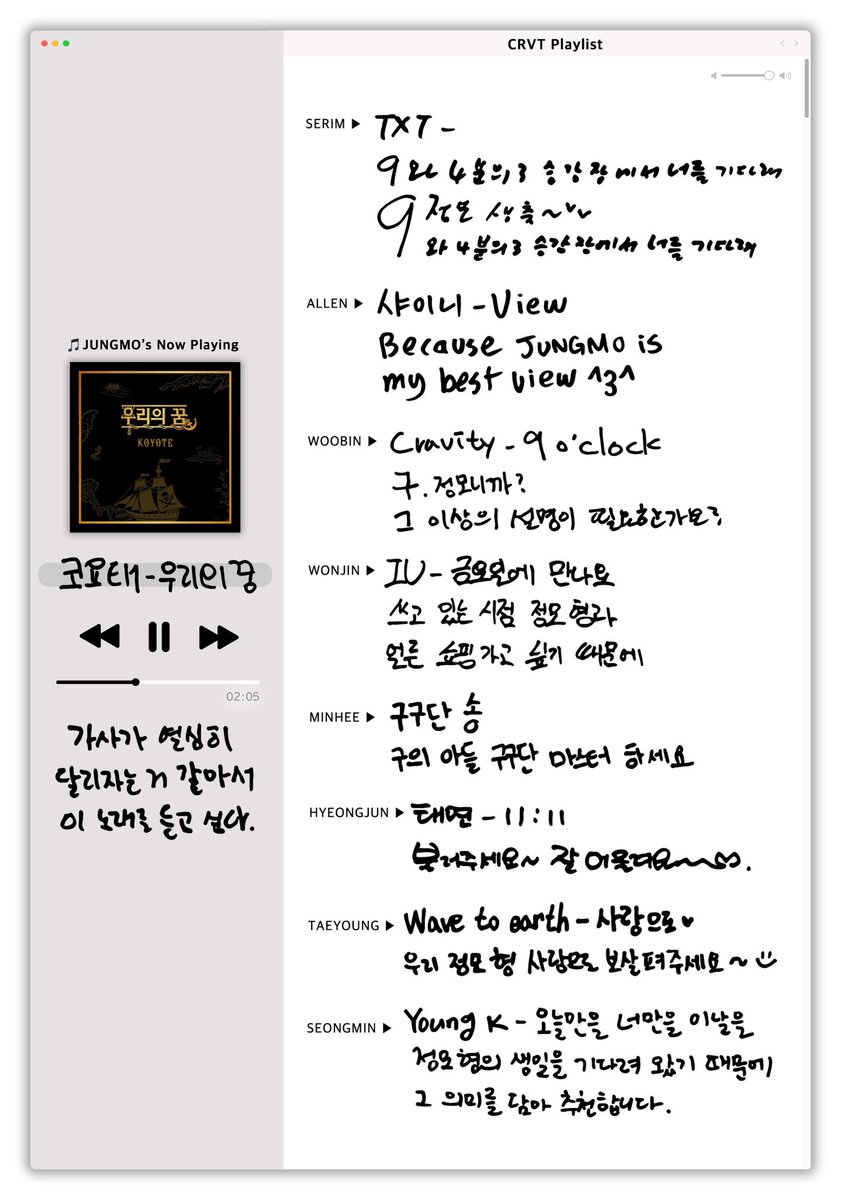 CRVT Playlist
🎵JUNGMO's Now Playing
우리의 꿈
KOYOTE
코요태-우리의 꿈
02:05
가사가 열심히
달리자는 거 같아서
이 노래를 듣고 싶다.
SERIM ▶ TXT -
9와 4분의 3 승강장에서 너를 기다려
9 정모 생축~♥♥
와 4분의 3 승강장에서 너를 기다려
ALLEN ▶ 샤이니 - View
Because JUNGMO is
my best view ^3^
WOOBIN ▶ Cravity - 9 o'clock
구. 정모니까?
그 이상의 설명이 필요한가요?
WONJIN ▶ IU - 금요일에 만나요
쓰고 있는 시점 정모 형과
얼른 쇼핑가고 싶기 때문에
MINHEE ▶ 구구단 송
구의 아들 구구단 마스터 하세요
HYEONGJUN ▶ 태연 - 11:11
불러주세요~ 잘 어울려요~~♡.
TAEYOUNG ▶ Wave to earth - 사랑으로♥
우리 정모형 사랑으로 보살펴주세요~
SEONGMIN ▶ Young K - 오늘만을 너만을 이날을
정모형의 생일을 기다려 왔기 때문에
그 의미를 담아 추천합니다.